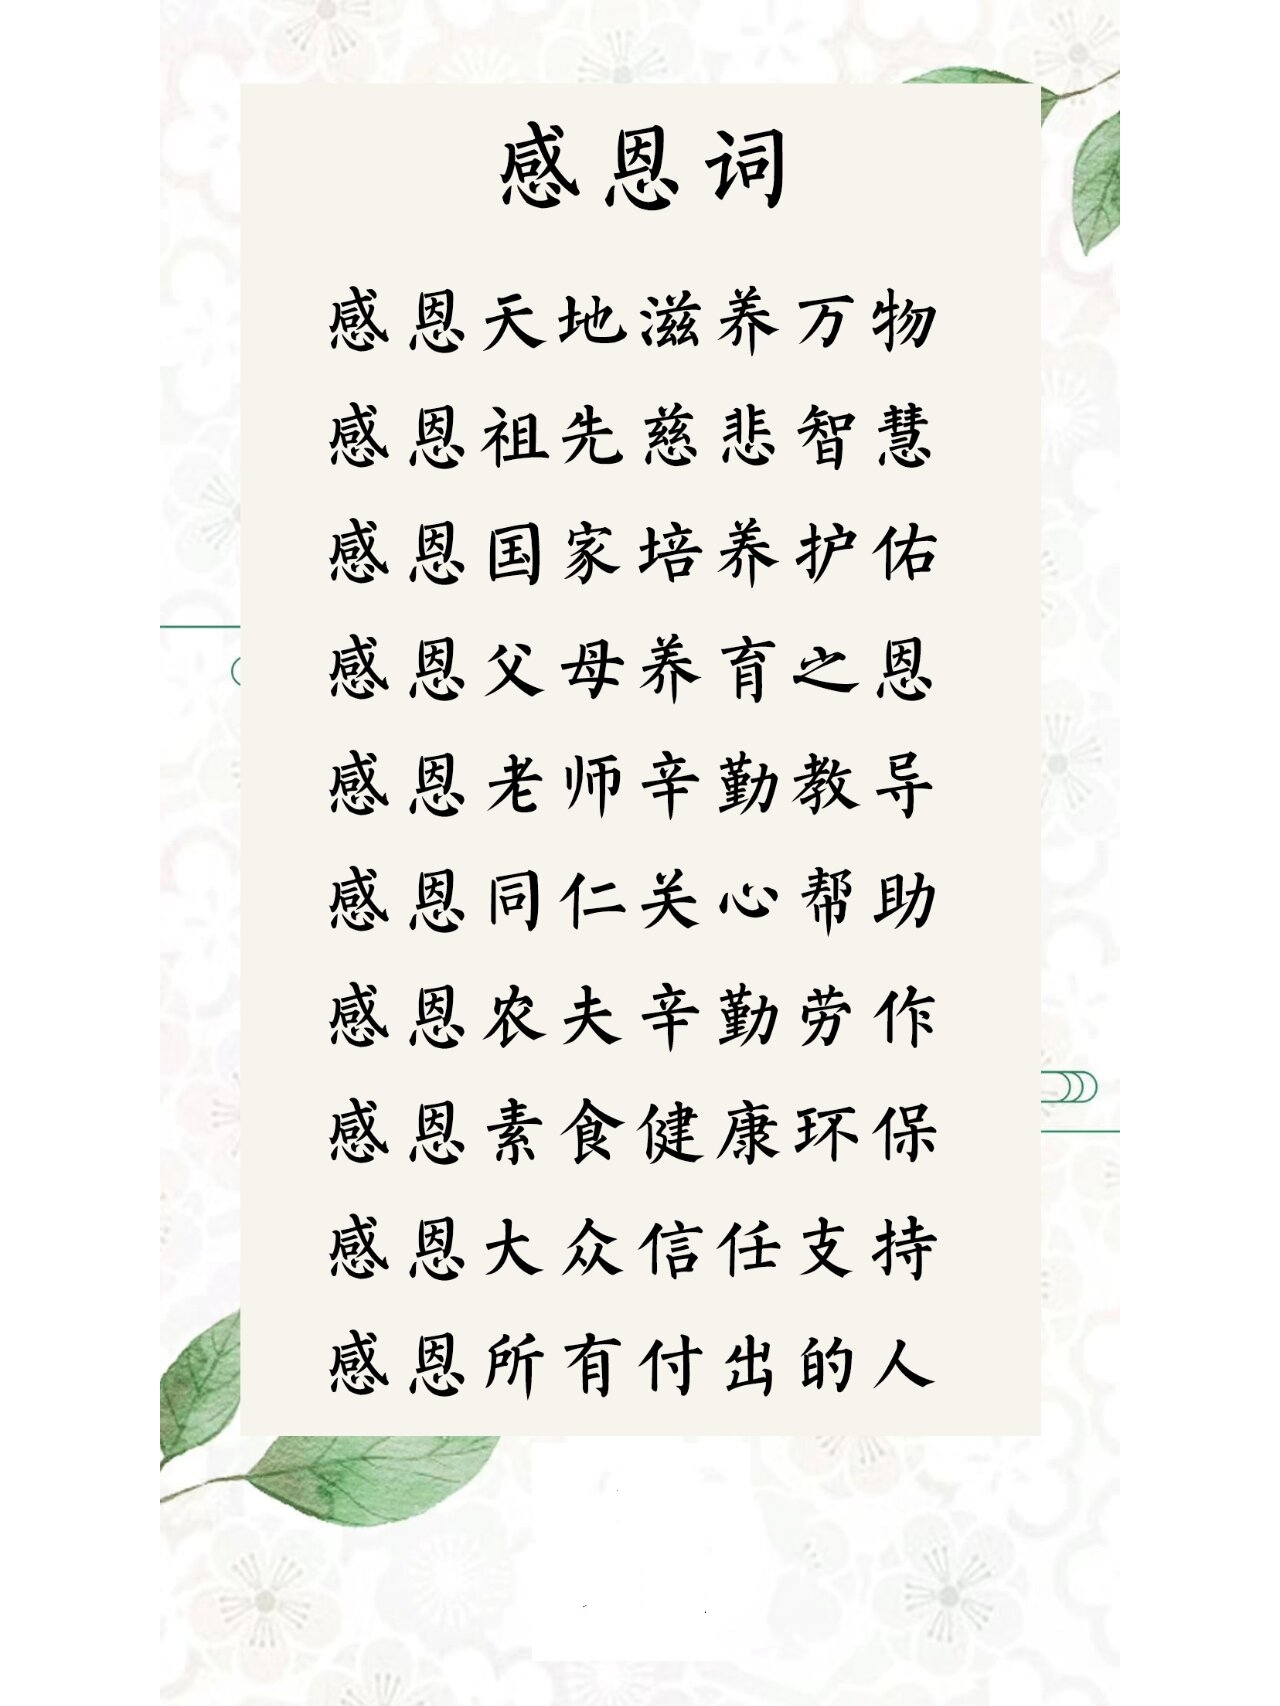 感恩词
感恩天地滋养万物
感恩祖先慈悲智慧
感恩国家培养护佑
感恩父母养育之恩
感恩老师辛勤教导
感恩同仁关心帮助
感恩农夫辛勤劳作
感恩素食健康环保
感恩大众信任支持
感恩所有付出的人